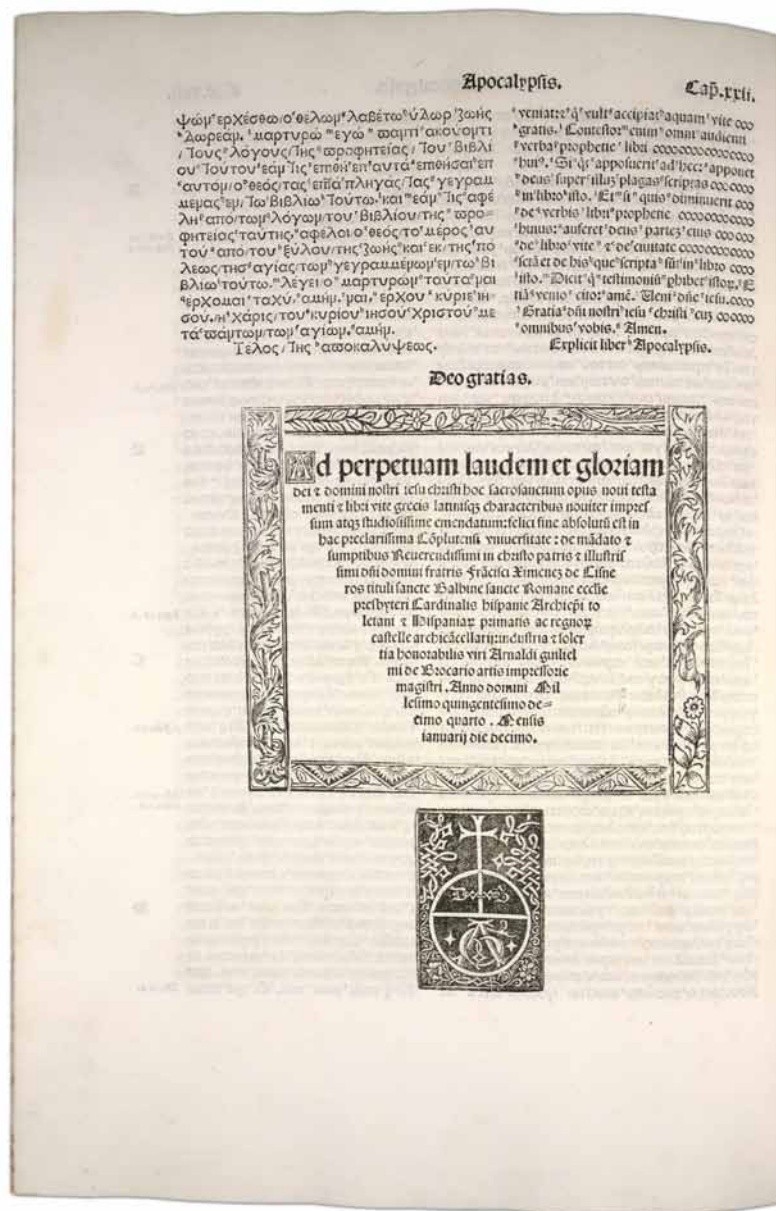 Apocalypsis. Cap̃.xxii.
ψῶμ ερχέσθω/ο θέλωμ λαβέτω ύδωρ ζωής
δωρεάμ. μαρτυρώ εγώ παμτί ακούομτι
/τους λόγους/της προφητείας/του βιβλί
ου τούτου εάμ τις επιθή επ αυτά επιθήσαι επ
αυτόμ/ο θεός,τας επτά πληγας/τας γεγραμ
μέμας εμ/τω βιβλίω τούτω. και εάμ τις αφέ
λη από/τωμ λόγωμ/του βιβλίου/της προ-
φητείας ταύτης, αφέλοι ο θεός/το μέρος αυ
τού από/του ξύλου/της ζωής και εκ/της πό
λεως/της αγίας/τωμ γεγραμμέμωμ εμ/τω βι
βλίω τούτω. λέγει ο μαρτυρώμ ταύτα μαι
ερχομαι ταχύ. αμήμ. μαι ερχου κύριε ιη-
σού./η χάρις/του κυρίου ιησού χριστού με
τά πάμτωμ/τωμ αγίωμ. αμήμ.
Τέλος/της αποκαλύψεως.
veniat: et q̃ vult accipiat aquam vite
gratis. Contestor enim omni audienti
verba prophetie libri
huius. Si q̃s apposuerit ad hec: apponet
deus super illuz plagas scriptas
in libro isto. Et si quis diminuerit
de verbis libri prophetie
huius: auferet deus partez eius
de libro vite ⁊ de civitate
sctã et de his que scripta sũt in libro
isto. Dicit q̃ testimoniũ phibet istoꝝ. E
tiã venio cito: amẽ. Veni dñe iesu.
Gratia dñi nostri iesu christi cuz
omnibus vobis. Amen.
Explicit liber Apocalypsis.
Deo gratias.
Ad perpetuam laudem et gloriam
dei ⁊ domini nostri iesu christi hoc sacrosanctum opus noui testa
menti ⁊ libri vite grecis latinisqȝ characteribus nouiter impres
sum atqȝ studiosissime emendatum: felici fine absolutũ est in
hac preclarissima Cõplutensi vniuersitate: de mãdato ⁊
sumptibus Reuerendissimi in christo patris ⁊ illustris
simi dñi domini fratris Frãcisci Ximenez de Cisne
ros tituli sancte Balbine sancte Romane ecclie
presbyteri Cardinalis hispanie Archiep̃i to
letani ⁊ Hispaniaꝝ primatis ac regnoꝝ
castelle archicãcellarij: industria ⁊ soler
tia honorabilis viri Arnaldi guiliel
mi de Brocario artis impressorie
magistri. Anno domini Mil
lesimo quingentesimo de=
cimo quarto. Mensis
ianuarij die decimo.